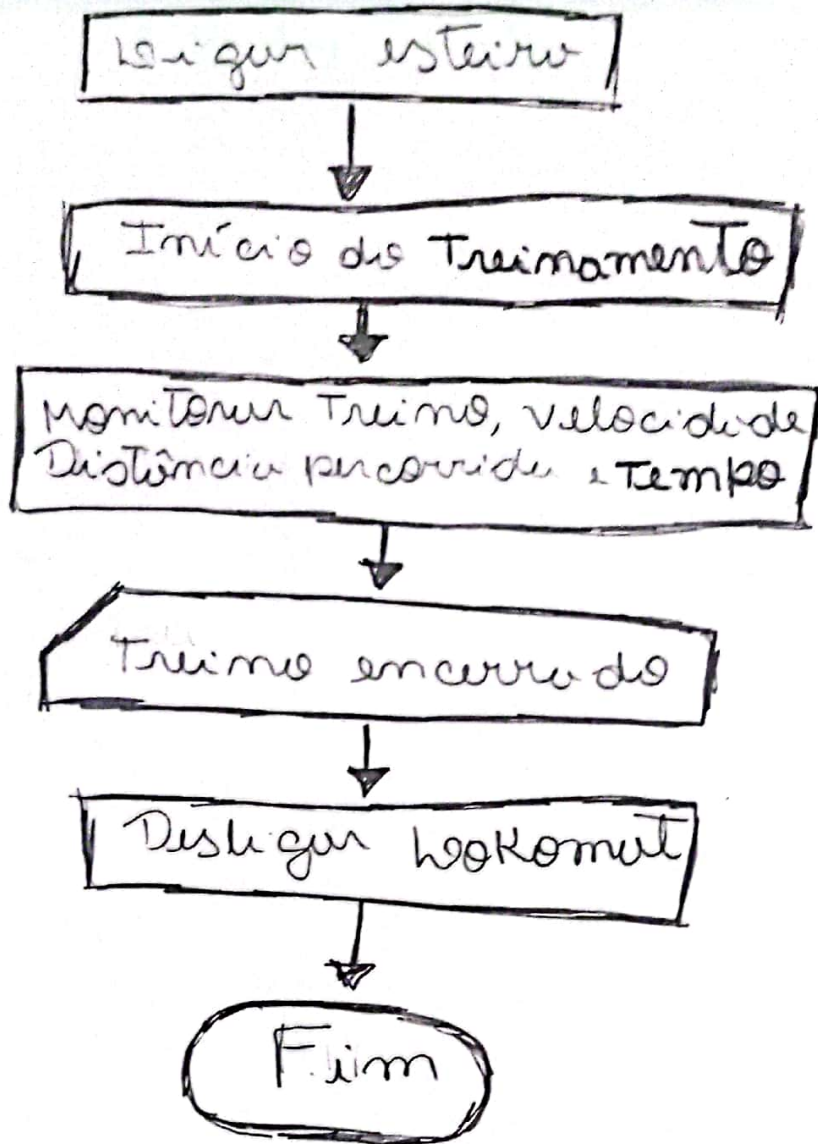 Ligar esteira
Início do Treinamento
Monitorar Treino, Velocidade
Distância percorrida e Tempo
Treino encerrado
Desligar Lokomat
Fim